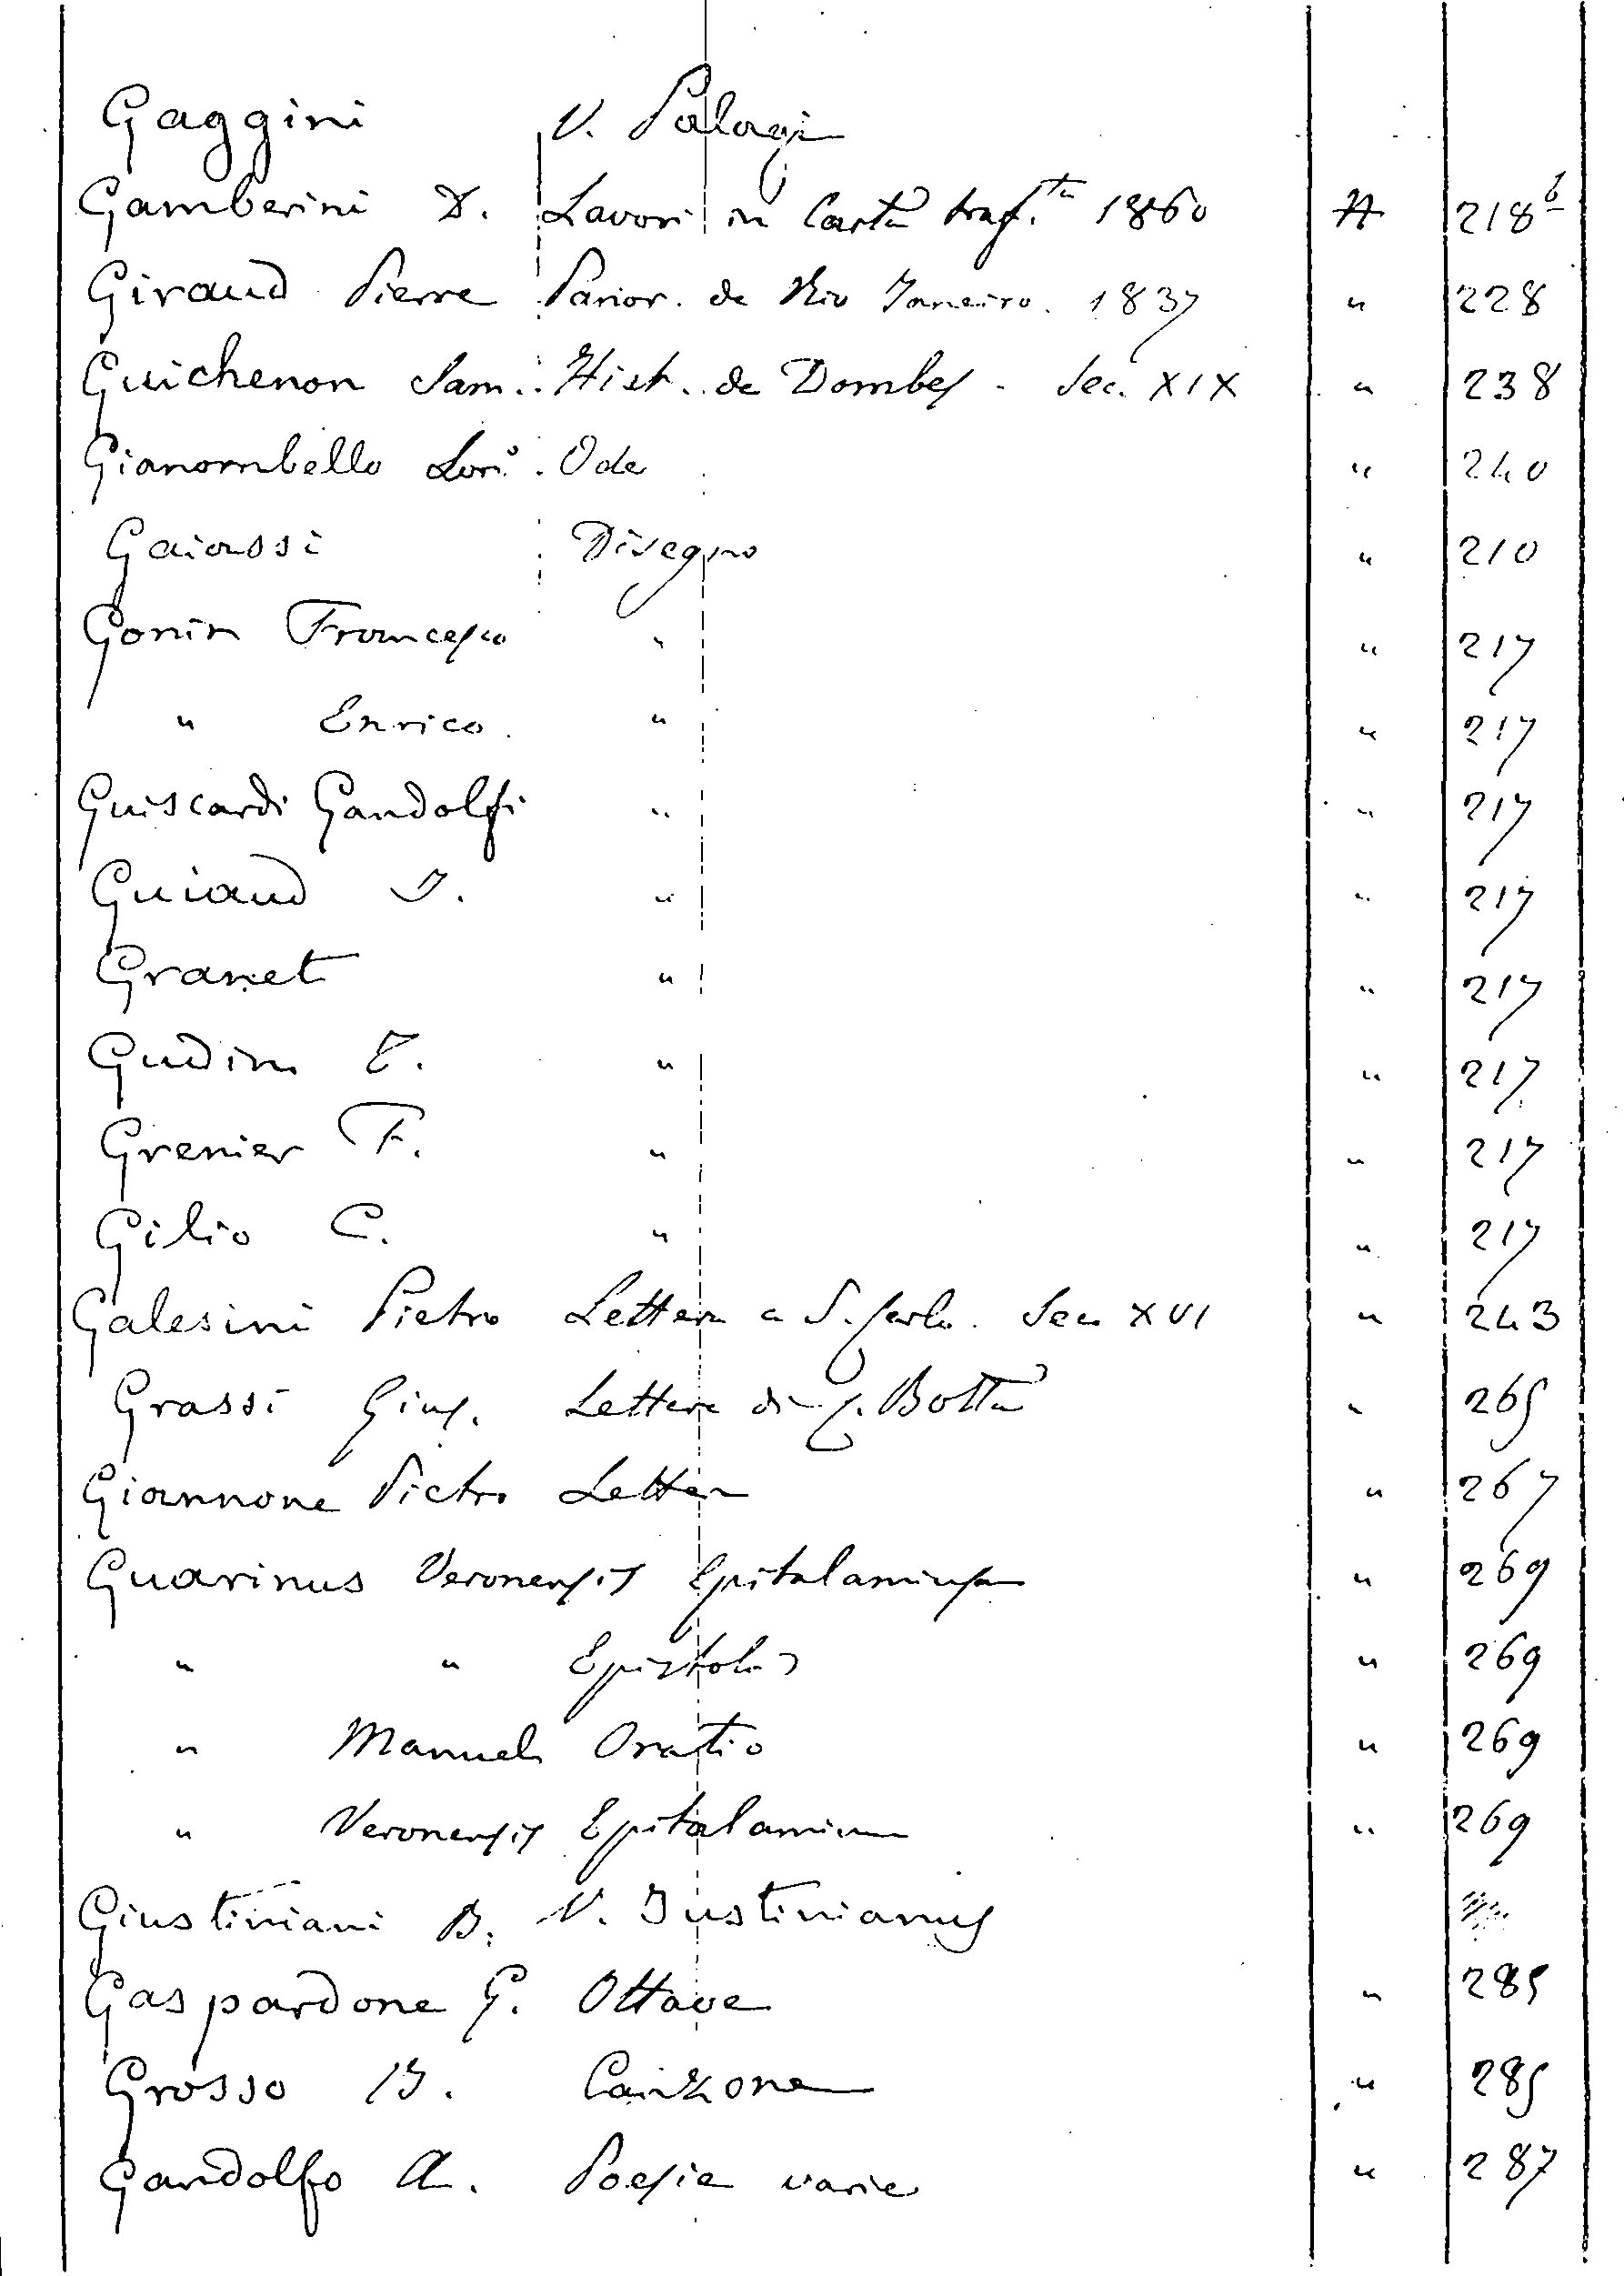 Gaggini V. Palagi
Gamberini D. Lavori in Carta traf.ta 1860 A 218b
Giraud Pierre Panor. de Rio Janeiro. 1837 " 228
Guichenon Sam. Hist. de Dombes - Sec. XIX " 238
Gianombello Lor.o Ode " 240
Gaiassi Disegno " 210
Gonin Francesco " " 217
" Enrico " " 217
Guiscardi Gandolfi " " 217
Guiaud J. " " 217
Granet " " 217
Gudin T. " " 217
Grenier F. " " 217
Gilio C. " " 217
Galesini Pietro Lettera a S. Carlo. Sec. XVI " 243
Grassi Gius. Lettere di C. Botta " 265
Giannone Pietro Lettera " 267
Guarinus Veronensis Epitalamium " 269
" " Epistola " 269
" Manueli Oratio " 269
" Veronensis Epitalamium " 269
Giustiniani B. V. Justinianus
Gaspardone G. Ottave " 285
Grosso B. Canzone " 285
Gandolfo A. Poesie varie " 287